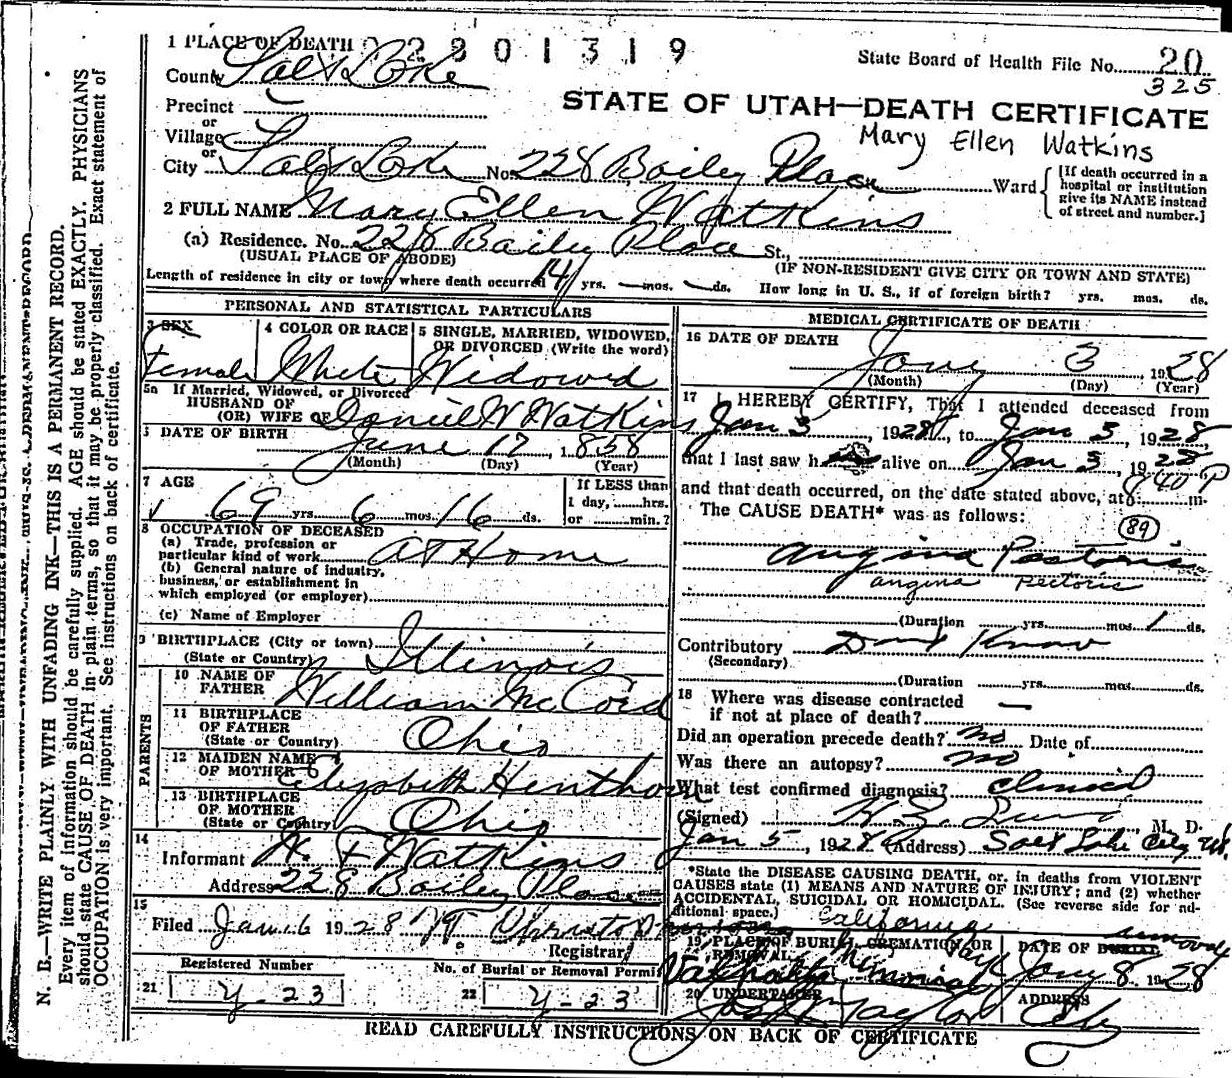 1 PLACE OF DEATH 2801319
State Board of Health File No. 20
325
County Salt Lake
STATE OF UTAH—DEATH CERTIFICATE
Precinct
or
Village
Mary Ellen Watkins
or
City Salt Lake No. 228 Baily Place Ward [If death occurred in a hospital or institution give its NAME instead of street and number.]
2 FULL NAME Mary Ellen Watkins
(a) Residence. No. 228 Baily Place St.,
(USUAL PLACE OF ABODE) (IF NON-RESIDENT GIVE CITY OR TOWN AND STATE)
Length of residence in city or town where death occurred 14 yrs. — mos. — ds. How long in U. S., if of foreign birth? yrs. mos. ds.
PERSONAL AND STATISTICAL PARTICULARS
3 SEX
Female
4 COLOR OR RACE
White
5 SINGLE, MARRIED, WIDOWED, OR DIVORCED (Write the word)
Widowed
5a If Married, Widowed, or Divorced
HUSBAND OF
(OR) WIFE OF Daniel W Watkins
DATE OF BIRTH June 17, 1858
(Month) (Day) (Year)
7 AGE
69 yrs. 6 mos. 16 ds.
If LESS than
1 day, ......hrs.
or ......min.?
8 OCCUPATION OF DECEASED
(a) Trade, profession or
particular kind of work At Home
(b) General nature of industry,
business, or establishment in
which employed (or employer)
(c) Name of Employer
9 BIRTHPLACE (City or town)
(State or Country) Illinois
PARENTS
10 NAME OF
FATHER William McCord
11 BIRTHPLACE
OF FATHER
(State or Country) Ohio
12 MAIDEN NAME
OF MOTHER Elizabeth Henthorn
13 BIRTHPLACE
OF MOTHER
(State or Country) Ohio
14
Informant W. F Watkins
Address 228 Baily Place
15
Filed Jan. 6 1928
Registrar
Registered Number
21 Y-23
No. of Burial or Removal Permit
22 Y-23
MEDICAL CERTIFICATE OF DEATH
16 DATE OF DEATH
Jany 3 1928
(Month) (Day) (Year)
17 I HEREBY CERTIFY, That I attended deceased from
Jan 3, 1928, to Jan 3, 1928
that I last saw h alive on Jan 3, 1928
and that death occurred, on the date stated above, at 8 40 P m.
The CAUSE DEATH* was as follows:
89
Angina Pectoris
angina pectoris
(Duration yrs. mos. 1 ds.
Contributory Dont Know
(Secondary)
(Duration yrs. mos. ds.
18 Where was disease contracted
if not at place of death? —
Did an operation precede death? no Date of
Was there an autopsy? no
What test confirmed diagnosis? Clinical
(Signed) M. D.
Jan 5, 1928 (Address) Salt Lake City Ut.
*State the DISEASE CAUSING DEATH, or, in deaths from VIOLENT
CAUSES state (1) MEANS AND NATURE OF INJURY; and (2) whether
ACCIDENTAL, SUICIDAL OR HOMICIDAL. (See reverse side for additional space.)
California
19 PLACE OF BURIAL, CREMATION OR
REMOVAL
Valhalla Memorial Park
DATE OF BURIAL
removal
Jany 8. 1928
20 UNDERTAKER
Taylor
ADDRESS
City
READ CAREFULLY INSTRUCTIONS ON BACK OF CERTIFICATE
N. B.—WRITE PLAINLY WITH UNFADING INK—THIS IS A PERMANENT RECORD.
Every item of information should be carefully supplied. AGE should be stated EXACTLY. PHYSICIANS
should state CAUSE OF DEATH in plain terms, so that it may be properly classified. Exact statement of
OCCUPATION is very important. See instructions on back of certificate.